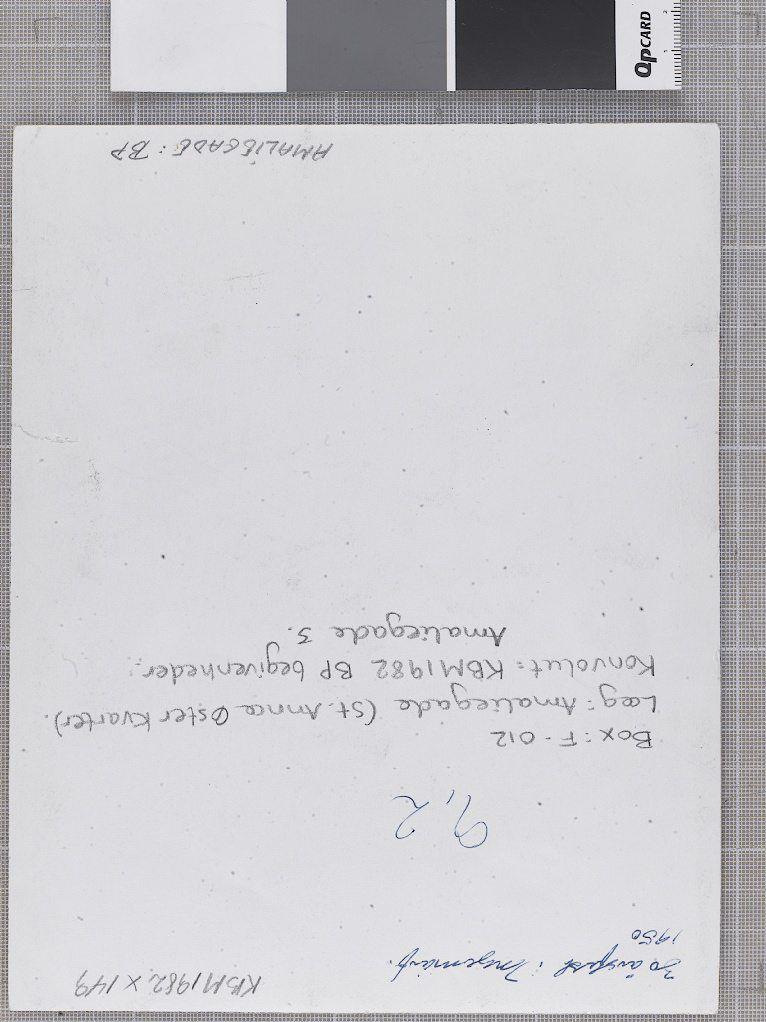 KBM 1982 X 149
30 årsfest i Ingeniørf.
1950
9,2
Box: F-012
Læg: Amaliegade (St. Annæ Øster Kvarter).
Konvolut: KBM1982 BP begivenheder.
Amaliegade 3.
AMALIEGADE: BP
QPCARD